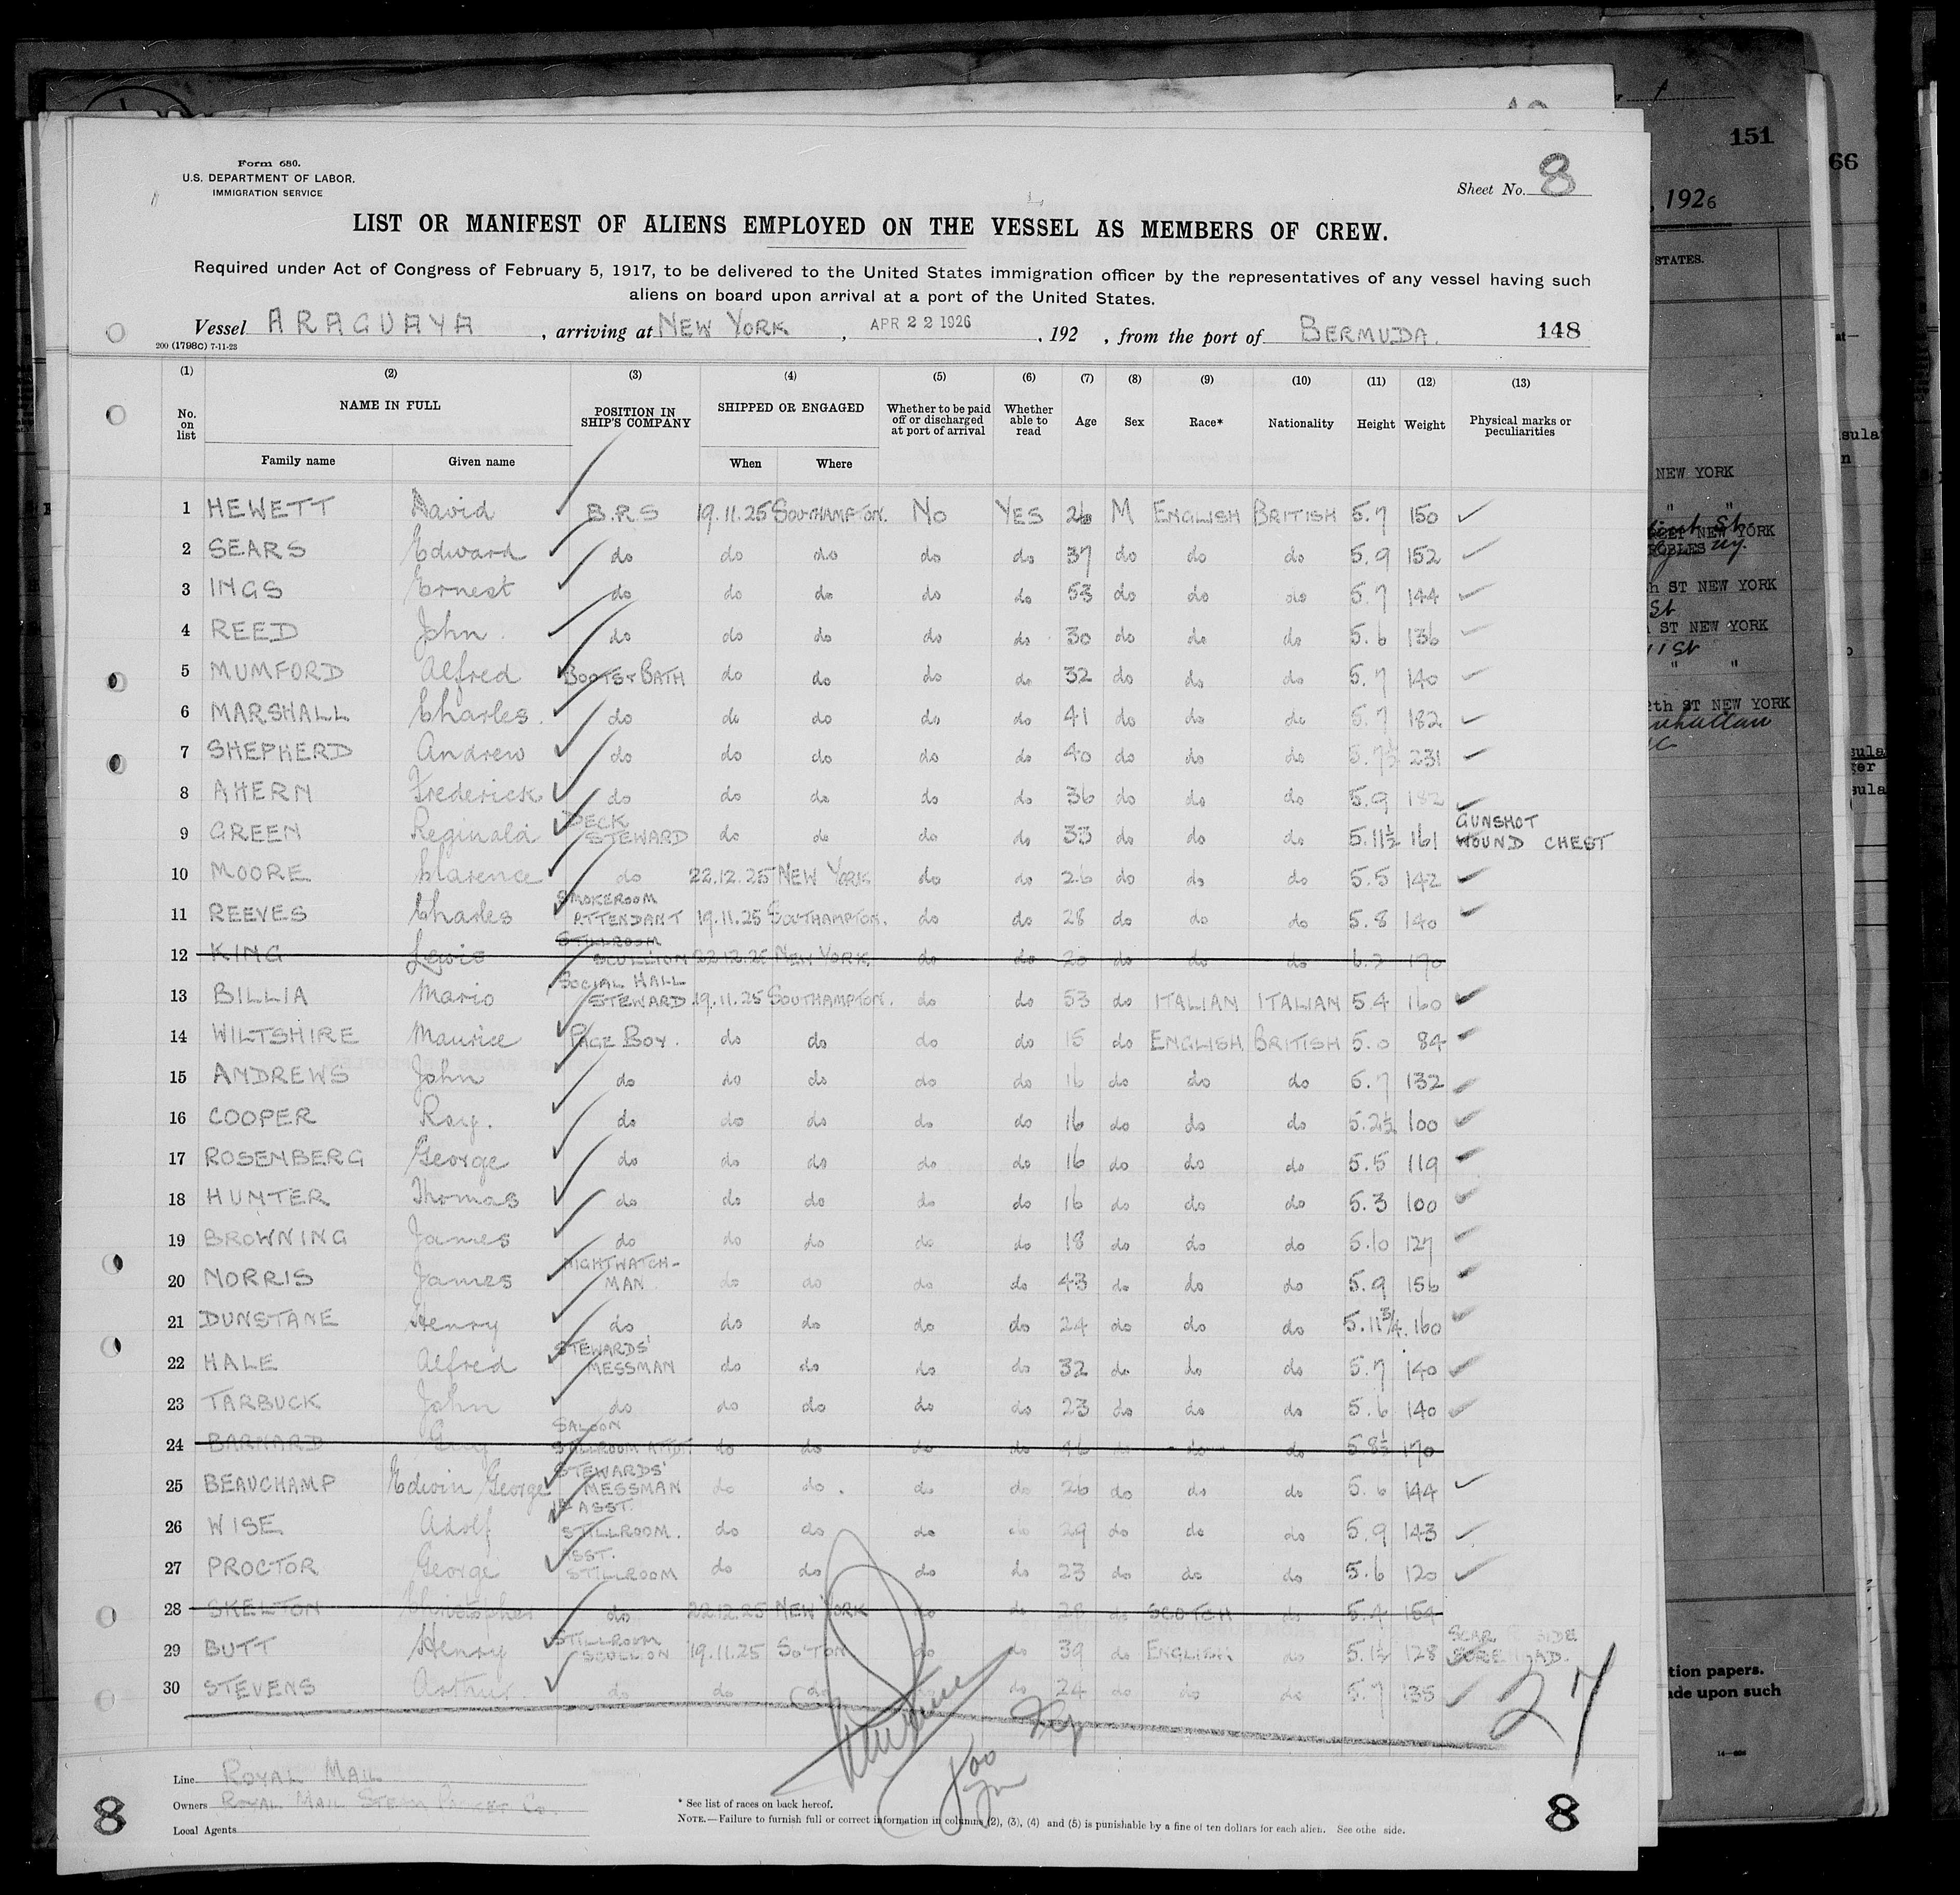 Form 680.
U.S. DEPARTMENT OF LABOR.
IMMIGRATION SERVICE
Sheet No. 8
LIST OR MANIFEST OF ALIENS EMPLOYED ON THE VESSEL AS MEMBERS OF CREW.
Required under Act of Congress of February 5, 1917, to be delivered to the United States immigration officer by the representatives of any vessel having such
aliens on board upon arrival at a port of the United States.
Vessel ARAGUAYA, arriving at NEW YORK, APR 22 1926, 192 , from the port of BERMUDA. 148
200 (1798C) 7-11-23
(1) (2) (3) (4) (5) (6) (7) (8) (9) (10) (11) (12) (13)
No. on list NAME IN FULL POSITION IN SHIP'S COMPANY SHIPPED OR ENGAGED Whether to be paid off or discharged at port of arrival Whether able to read Age Sex Race* Nationality Height Weight Physical marks or peculiarities
Family name Given name When Where
1 HEWETT David B.R.S 19.11.25 SOUTHAMPTON. No YES 26 M ENGLISH BRITISH 5.7 150
2 SEARS Edward do do do do do 37 do do do 5.9 152
3 INGS Ernest do do do do do 53 do do do 5.7 144
4 REED John. do do do do do 30 do do do 5.6 136
5 MUMFORD Alfred BOOTS & BATH do do do do 32 do do do 5.7 140
6 MARSHALL Charles. do do do do do 41 do do do 5.7 182
7 SHEPHERD Andrew do do do do do 40 do do do 5.7½ 231
8 AHERN Frederick do do do do do 36 do do do 5.9 182
9 GREEN Reginald DECK STEWARD do do do do 33 do do do 5.11½ 161 GUNSHOT WOUND CHEST
10 MOORE Clarence do 22.12.25 NEW YORK do do 26 do do do 5.5 142
11 REEVES Charles SMOKEROOM ATTENDANT 19.11.25 SOUTHAMPTON. do do 28 do do do 5.8 140
12 KING Lewis STILLROOM SCULLION 22.12.25 NEW YORK. do do 20 do do do 170
13 BILLIA Mario SOCIAL HALL STEWARD 19.11.25 SOUTHAMPTON. do do 53 do ITALIAN ITALIAN 5.4 160
14 WILTSHIRE Maurice PAGE BOY. do do do do 15 do ENGLISH BRITISH 5.0 84
15 ANDREWS John do do do do do 16 do do do 5.7 132
16 COOPER Roy. do do do do do 16 do do do 5.2½ 100
17 ROSENBERG George do do do do do 16 do do do 5.5 119
18 HUNTER Thomas do do do do do 16 do do do 5.3 100
19 BROWNING James do do do do do 18 do do do 5.10 127
20 NORRIS James NIGHTWATCH-MAN do do do do 43 do do do 5.9 156
21 DUNSTANE Henry do do do do do 24 do do do 5.11¾. 160
22 HALE Alfred STEWARDS' MESSMAN do do do do 32 do do do 5.7 140
23 TARBUCK John do do do do do 23 do do do 5.6 140
24 BARNARD Guy SALOON STILLROOM ATTDT do do do do 46 do do do 5.8½ 170
25 BEAUCHAMP Edwin George STEWARDS' MESSMAN do do. do do 26 do do do 5.6 144
26 WISE Adolf 1st ASST. STILLROOM. do do do do 29 do do do 5.9 143
27 PROCTOR George ASST. STILLROOM do do do do 23 do do do 5.6 120
28 SKELTON Christopher do 22.12.25 NEW YORK do do 28 do SCOTCH do 5.4 154
29 BUTT Henry STILLROOM SCULLION 19.11.25 SO'TON do do 39 do ENGLISH do 5.1½ 128 SCAR SIDE
30 STEVENS Arthur. do do do do do 24 do do do 5.7 135
27
Line ROYAL MAIL
Owners ROYAL MAIL STEAM PACKET Co.
Local Agents
* See list of races on back hereof.
NOTE.—Failure to furnish full or correct information in columns (2), (3), (4) and (5) is punishable by a fine of ten dollars for each alien. See othe side.
8
8
151
66
, 1926
STATES.
NEW YORK
NEW YORK
ST NEW YORK
St
ST NEW YORK
ST NEW YORK
tion papers.
ade upon such